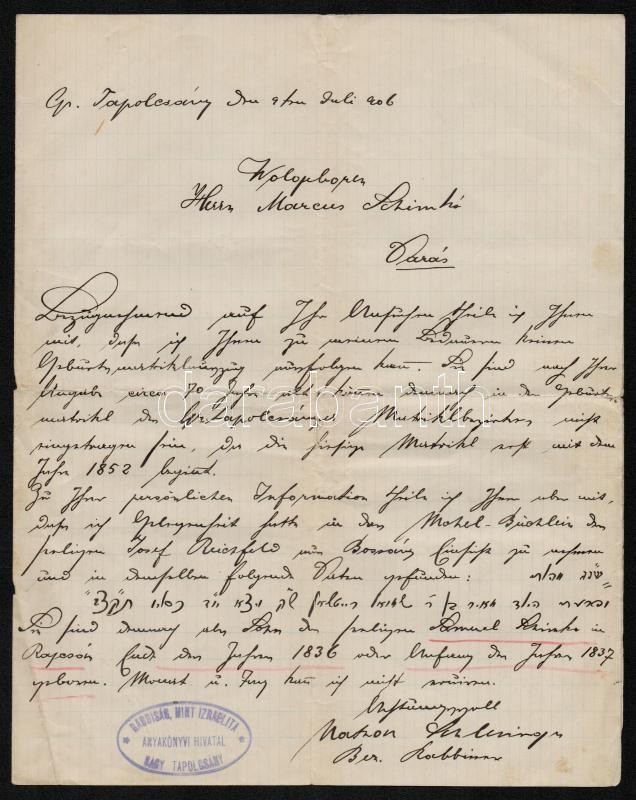 Gr. Tapolcsány den 9ten Juli 906
Wolgeboren
Herrn Marcus Schimkó
Darás
Bezugnehmend auf Ihr Ansuchen theile ich Ihnen
mit, daß ich Ihnen zu meinem Bedauern keinen
Geburtsmatrikelauszug ausfolgen kann. Sie sind nach Ihrer
Angabe circa 70 Jahre alt, können demnach in der Geburts-
matrikl des Gr. Tapolcsányer Matrikelbezirkes nicht
eingetragen sein, da die hiesige Matrikl erst mit dem
Jahre 1852 beginnt.
Zu Ihrer persönlichen Information theile ich Ihnen aber mit,
daß ich Gelegenheit hatte in das Mohel-Büchlein des
seeligen Josef Reichfeld aus Bossány Einsicht zu nehmen
und in demselben folgende Daten gefunden:
Sie sind demnach als Sohn des seeligen Samuel Schimko in
Rajcsán Ende des Jahres 1836 oder Anfang des Jahres 1837
geboren. Monat u. Tag kann ich nicht eruiren.
Achtungsvoll
Natan
Bez. Rabbiner
RABBISÁG, MINT IZRAELITA
ANYAKÖNYVI HIVATAL
NAGY TAPOLCSÁNY
darabanth